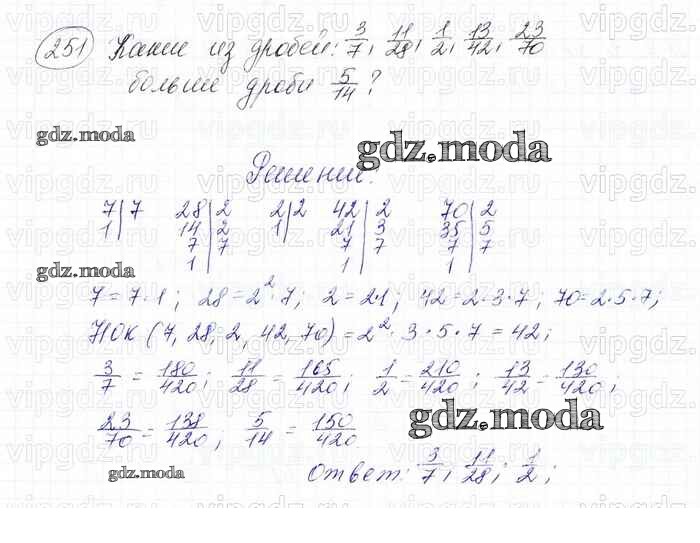 251 Какие из дробей: 3/7, 11/28, 1/2, 13/42, 23/70
больше дроби 5/14?
gdz.moda
gdz.moda
Решение.
7|7 28|2 2|2 42|2 70|2
1| 14|2 1| 21|3 35|5
7|7 7|7 7|7
1| 1| 1|
gdz.moda
7=7·1; 28=2²·7; 2=2·1; 42=2·3·7, 70=2·5·7;
НОК (7, 28, 2, 42, 70)=2²·3·5·7=42;
3/7 = 180/420; 11/28 = 165/420; 1/2 = 210/420; 13/42 = 130/420;
23/70 = 138/420; 5/14 = 150/420
gdz.moda
gdz.moda
Ответ: 3/7; 11/28; 1/2;